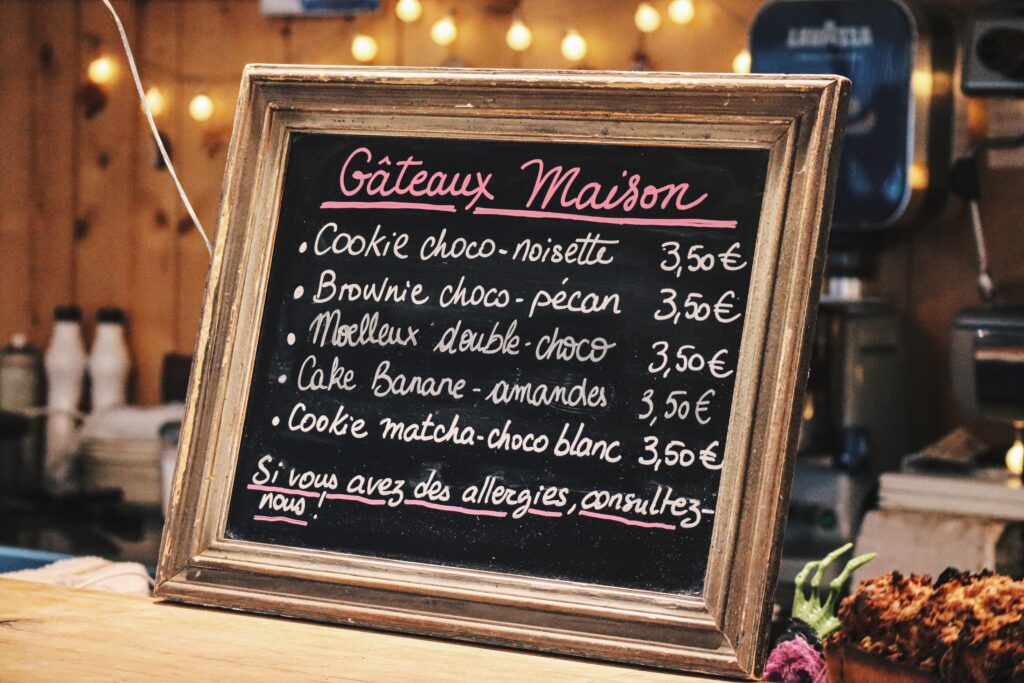 LAVAZZA
Gâteaux Maison
• Cookie choco-noisette 3,50€
• Brownie choco-pécan 3,50€
• Moelleux double-choco 3,50€
• Cake Banane-amandes 3,50€
• Cookie matcha-choco blanc 3,50€
Si vous avez des allergies, consultez-
nous !